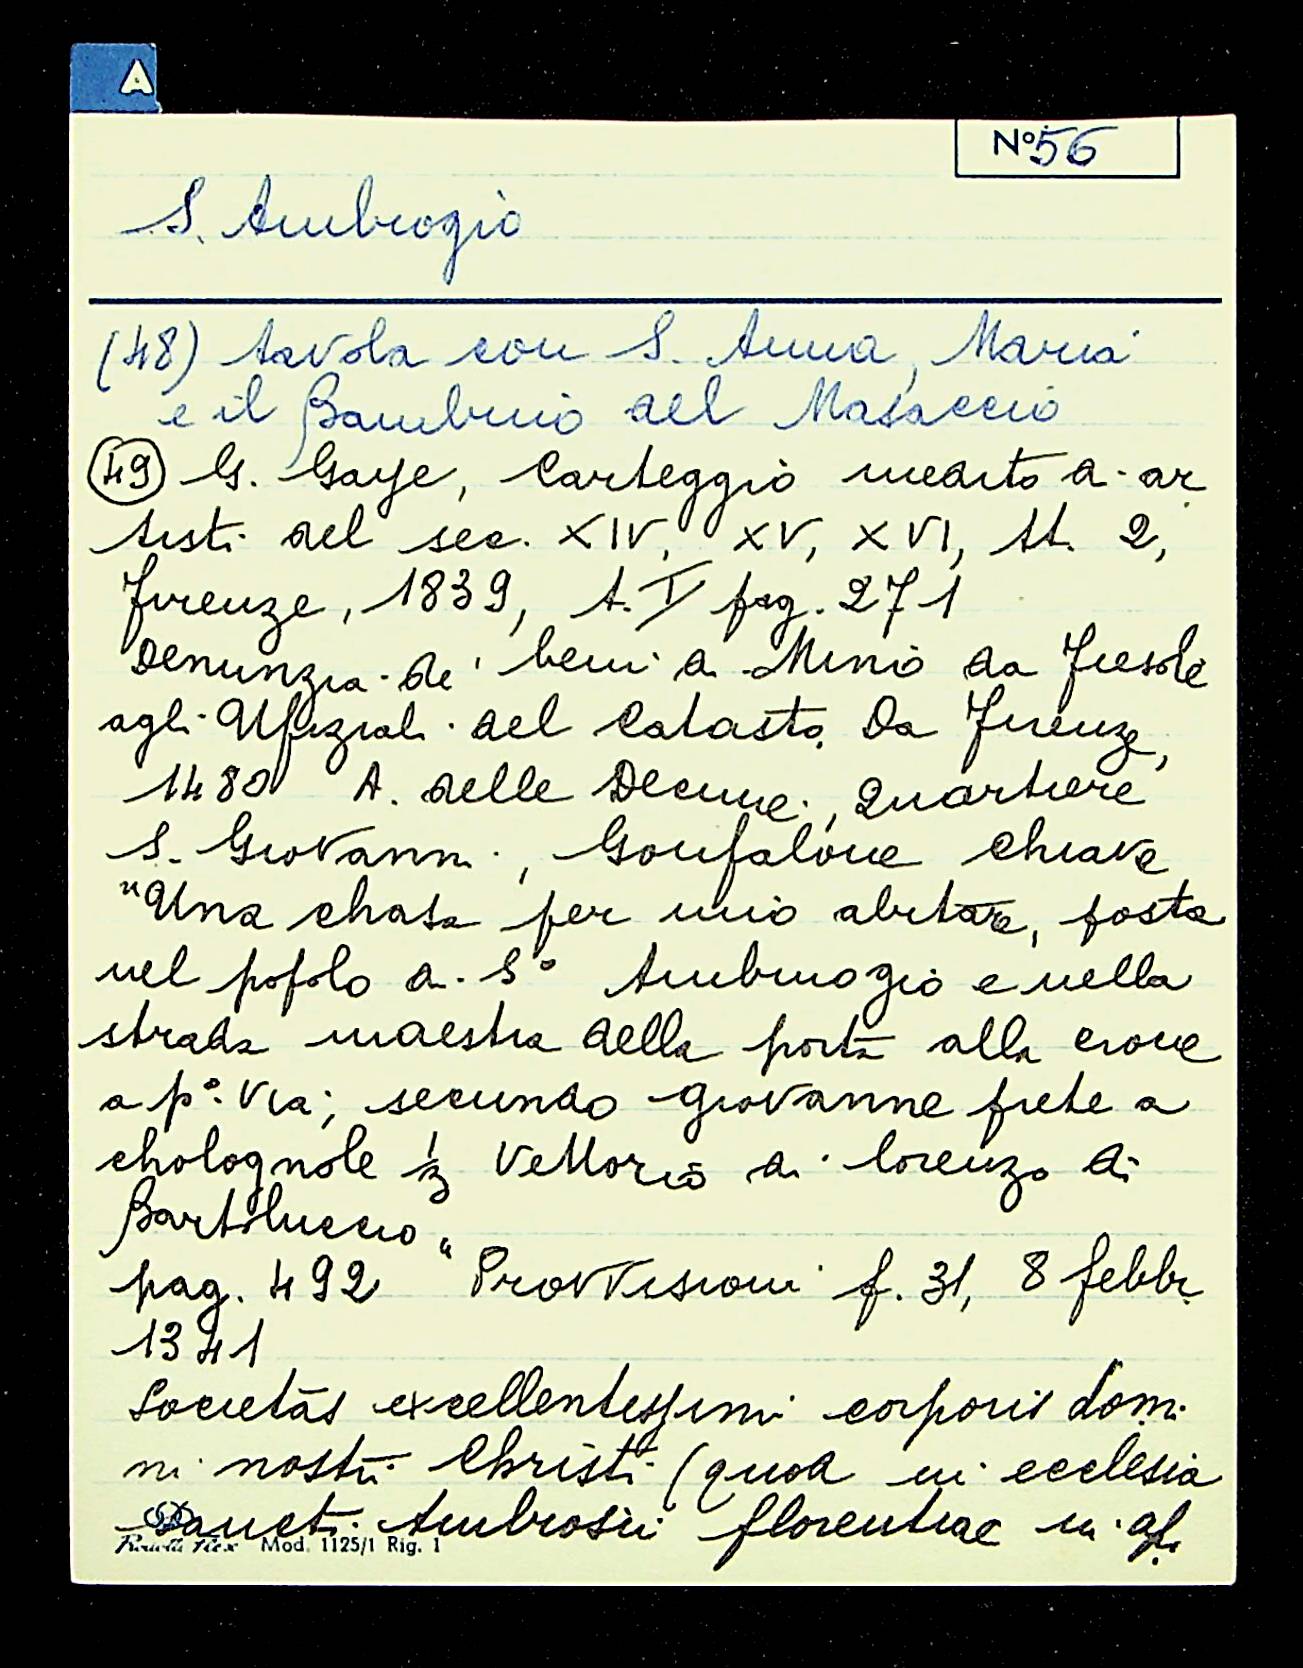 A
N° 56
S. Ambrogio
(48) tavola con S. Anna, Maria
e il Bambino del Masaccio
(49) G. Gaye, Carteggio inedito di ar
tisti del sec. XIV, XV, XVI, tt. 2,
Firenze, 1839, t. I pag. 271
Denunzia de' beni di Mino da Fiesole
agli Ufiziali del Catasto Da Firenze,
1480 A. delle Decime, Quartiere
S. Giovanni, Gonfalone Chiave
"Una chasa per mio abitare, posta
nel popolo di S° Ambruogio e nella
strada maestra della porta alla croce
a p° via; secundo giovanne prete a
cholognole 1/3 Vettorio di lorenzo di
Bartoluccio"
pag. 492 "Provvisioni f. 31, 8 febbr.
1341
Societas excellentissimi corporis domi
ni nostri Christi (quod in ecclesia
Sancti Ambrosii florentiae in
Mod. 1125/1 Rig. 1